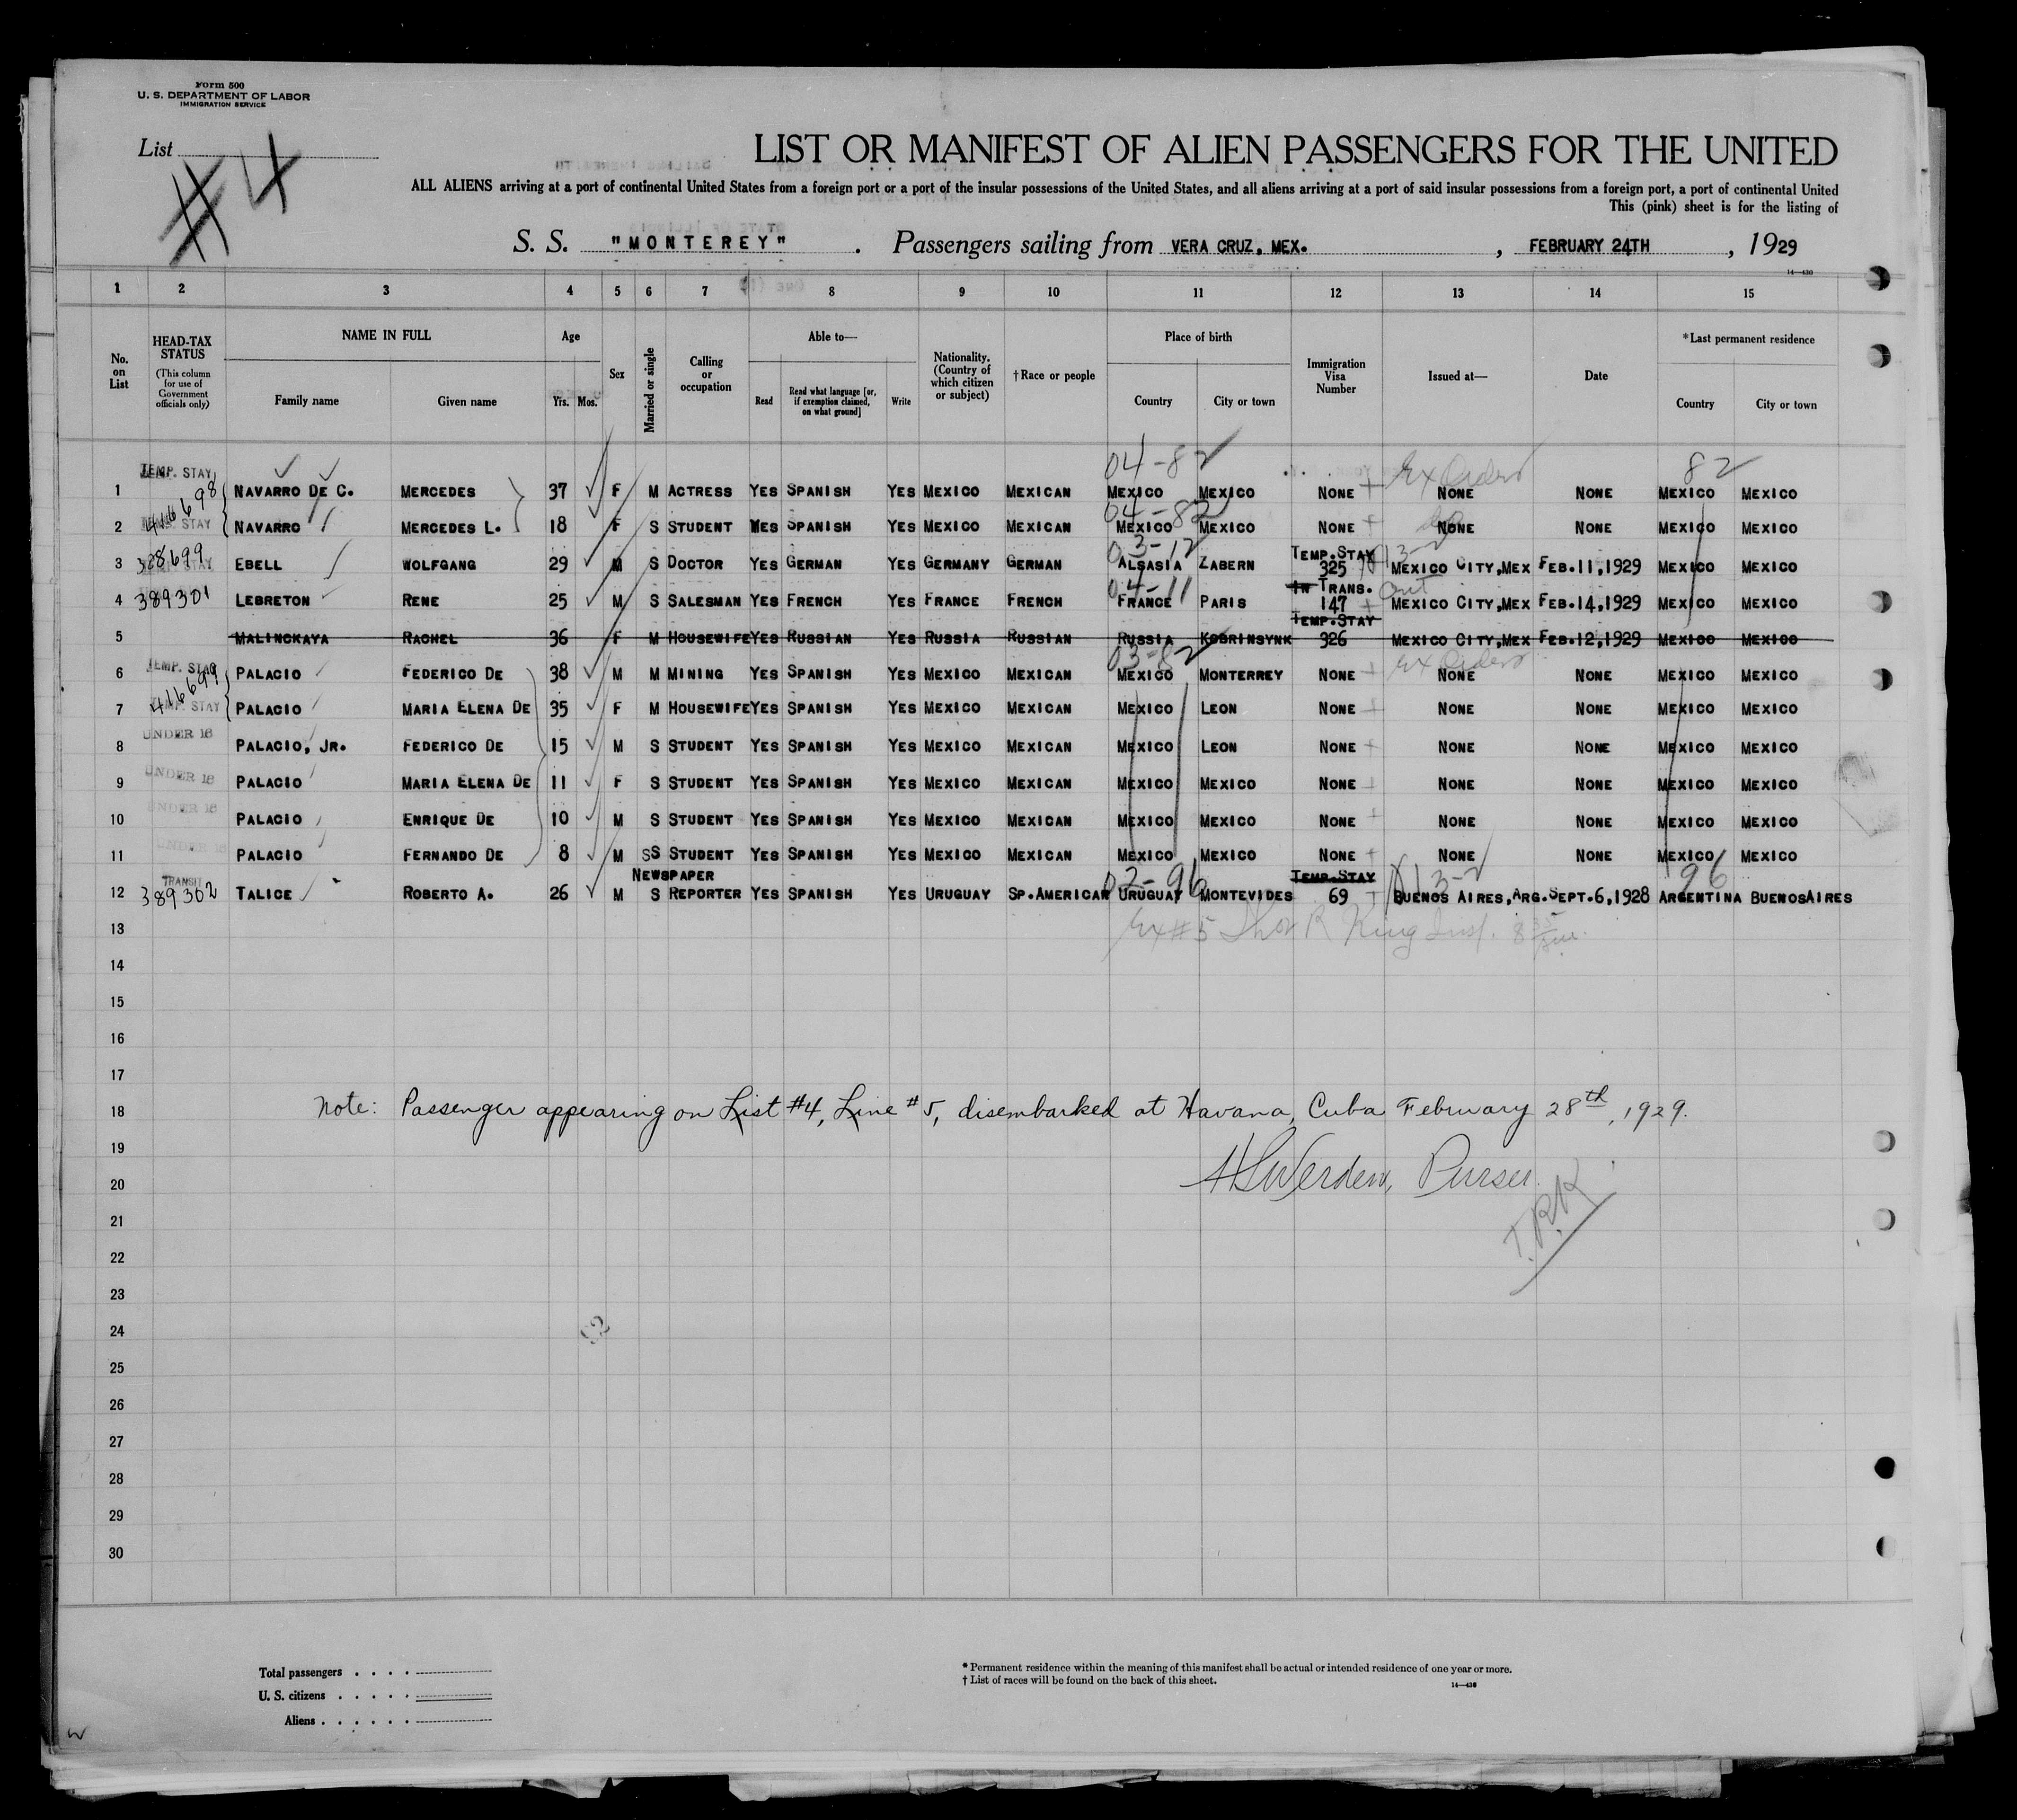 Form 500
U. S. DEPARTMENT OF LABOR
IMMIGRATION SERVICE
List #4
LIST OR MANIFEST OF ALIEN PASSENGERS FOR THE UNITED
ALL ALIENS arriving at a port of continental United States from a foreign port or a port of the insular possessions of the United States, and all aliens arriving at a port of said insular possessions from a foreign port, a port of continental United
This (pink) sheet is for the listing of
S. S. "MONTEREY" . Passengers sailing from VERA CRUZ, MEX. , FEBRUARY 24TH , 1929
14—430
1 2 3 4 5 6 7 8 9 10 11 12 13 14 15
No. on List
HEAD-TAX STATUS (This column for use of Government officials only)
NAME IN FULL
Family name Given name
Age
Yrs. Mos.
Sex
Married or single
Calling or occupation
Able to—
Read Read what language [or, if exemption claimed, on what ground] Write
Nationality. (Country of which citizen or subject)
†Race or people
Place of birth
Country City or town
Immigration Visa Number
Issued at—
Date
*Last permanent residence
Country City or town
TEMP. STAY 04-82 Ex Order 82
1 NAVARRO DE C. MERCEDES 37 F M ACTRESS YES SPANISH YES MEXICO MEXICAN MEXICO MEXICO NONE NONE NONE MEXICO MEXICO
416698 04-82
2 STAY NAVARRO MERCEDES L. 18 F S STUDENT YES SPANISH YES MEXICO MEXICAN MEXICO MEXICO NONE NONE NONE MEXICO MEXICO
03-12 TEMP. STAY
3 328699 EBELL WOLFGANG 29 M S DOCTOR YES GERMAN YES GERMANY GERMAN ALSASIA ZABERN 325 MEXICO CITY, MEX FEB. 11, 1929 MEXICO MEXICO
04-11 IN TRANS.
4 389301 LEBRETON RENE 25 M S SALESMAN YES FRENCH YES FRANCE FRENCH FRANCE PARIS 147 MEXICO CITY, MEX FEB. 14, 1929 MEXICO MEXICO
TEMP. STAY
5 MALINCKAYA RACHEL 36 F M HOUSEWIFE YES RUSSIAN YES RUSSIA RUSSIAN RUSSIA KOBRINSYNK 326 MEXICO CITY, MEX FEB. 12, 1929 MEXICO MEXICO
TEMP. STAY 03-82 Ex Order
6 PALACIO FEDERICO DE 38 M M MINING YES SPANISH YES MEXICO MEXICAN MEXICO MONTERREY NONE NONE NONE MEXICO MEXICO
416699
7 STAY PALACIO MARIA ELENA DE 35 F M HOUSEWIFE YES SPANISH YES MEXICO MEXICAN MEXICO LEON NONE NONE NONE MEXICO MEXICO
8 UNDER 16 PALACIO, JR. FEDERICO DE 15 M S STUDENT YES SPANISH YES MEXICO MEXICAN MEXICO LEON NONE NONE NONE MEXICO MEXICO
9 UNDER 16 PALACIO MARIA ELENA DE 11 F S STUDENT YES SPANISH YES MEXICO MEXICAN MEXICO MEXICO NONE NONE NONE MEXICO MEXICO
10 UNDER 16 PALACIO ENRIQUE DE 10 M S STUDENT YES SPANISH YES MEXICO MEXICAN MEXICO MEXICO NONE NONE NONE MEXICO MEXICO
11 UNDER 16 PALACIO FERNANDO DE 8 M SS STUDENT YES SPANISH YES MEXICO MEXICAN MEXICO MEXICO NONE NONE NONE MEXICO MEXICO
TRANSIT NEWSPAPER 02-96 TEMP. STAY 96
12 389302 TALICE ROBERTO A. 26 M S REPORTER YES SPANISH YES URUGUAY SP. AMERICAN URUGUAY MONTEVIDES 69 BUENOS AIRES, ARG. SEPT. 6, 1928 ARGENTINA BUENOS AIRES
13 Ex #5 Thos R King Insp.
14
15
16
17
18 Note: Passenger appearing on List #4, Line #5, disembarked at Havana, Cuba February 28th, 1929.
19
20 Werden, Purser.
21 T.R.K.
22
23
24
25
26
27
28
29
30
Total passengers . . . .
U. S. citizens . . . . .
Aliens . . . . . .
* Permanent residence within the meaning of this manifest shall be actual or intended residence of one year or more.
† List of races will be found on the back of this sheet.
14—430